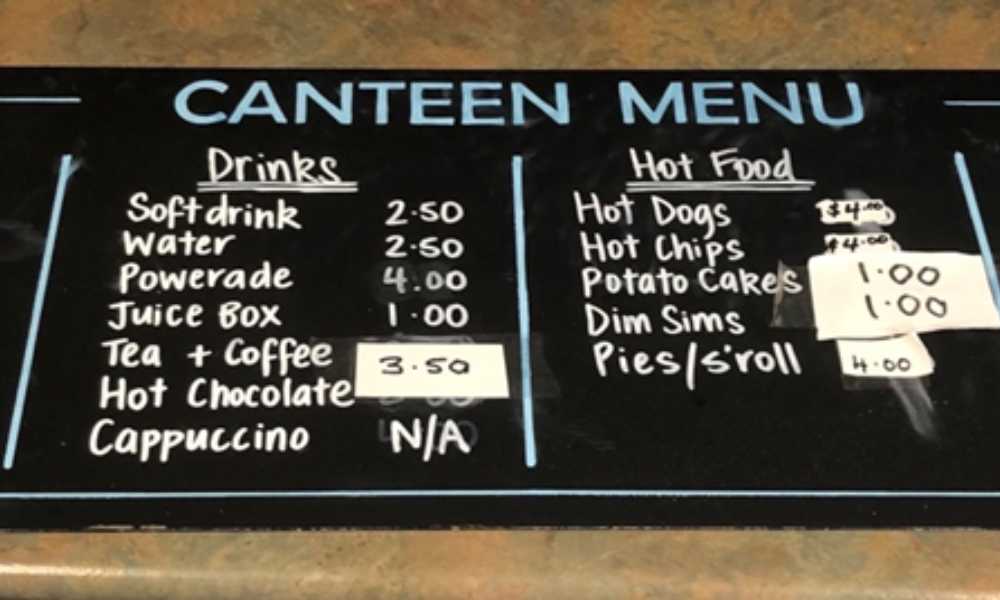 CANTEEN MENU
Drinks
Softdrink 2.50
Water 2.50
Powerade 4.00
Juice Box 1.00
Tea + Coffee 3.50
Hot Chocolate
Cappuccino N/A
Hot Food
Hot Dogs $4.00
Hot Chips $4.00
Potato Cakes 1.00
Dim Sims 1.00
Pies/s'roll 4.00